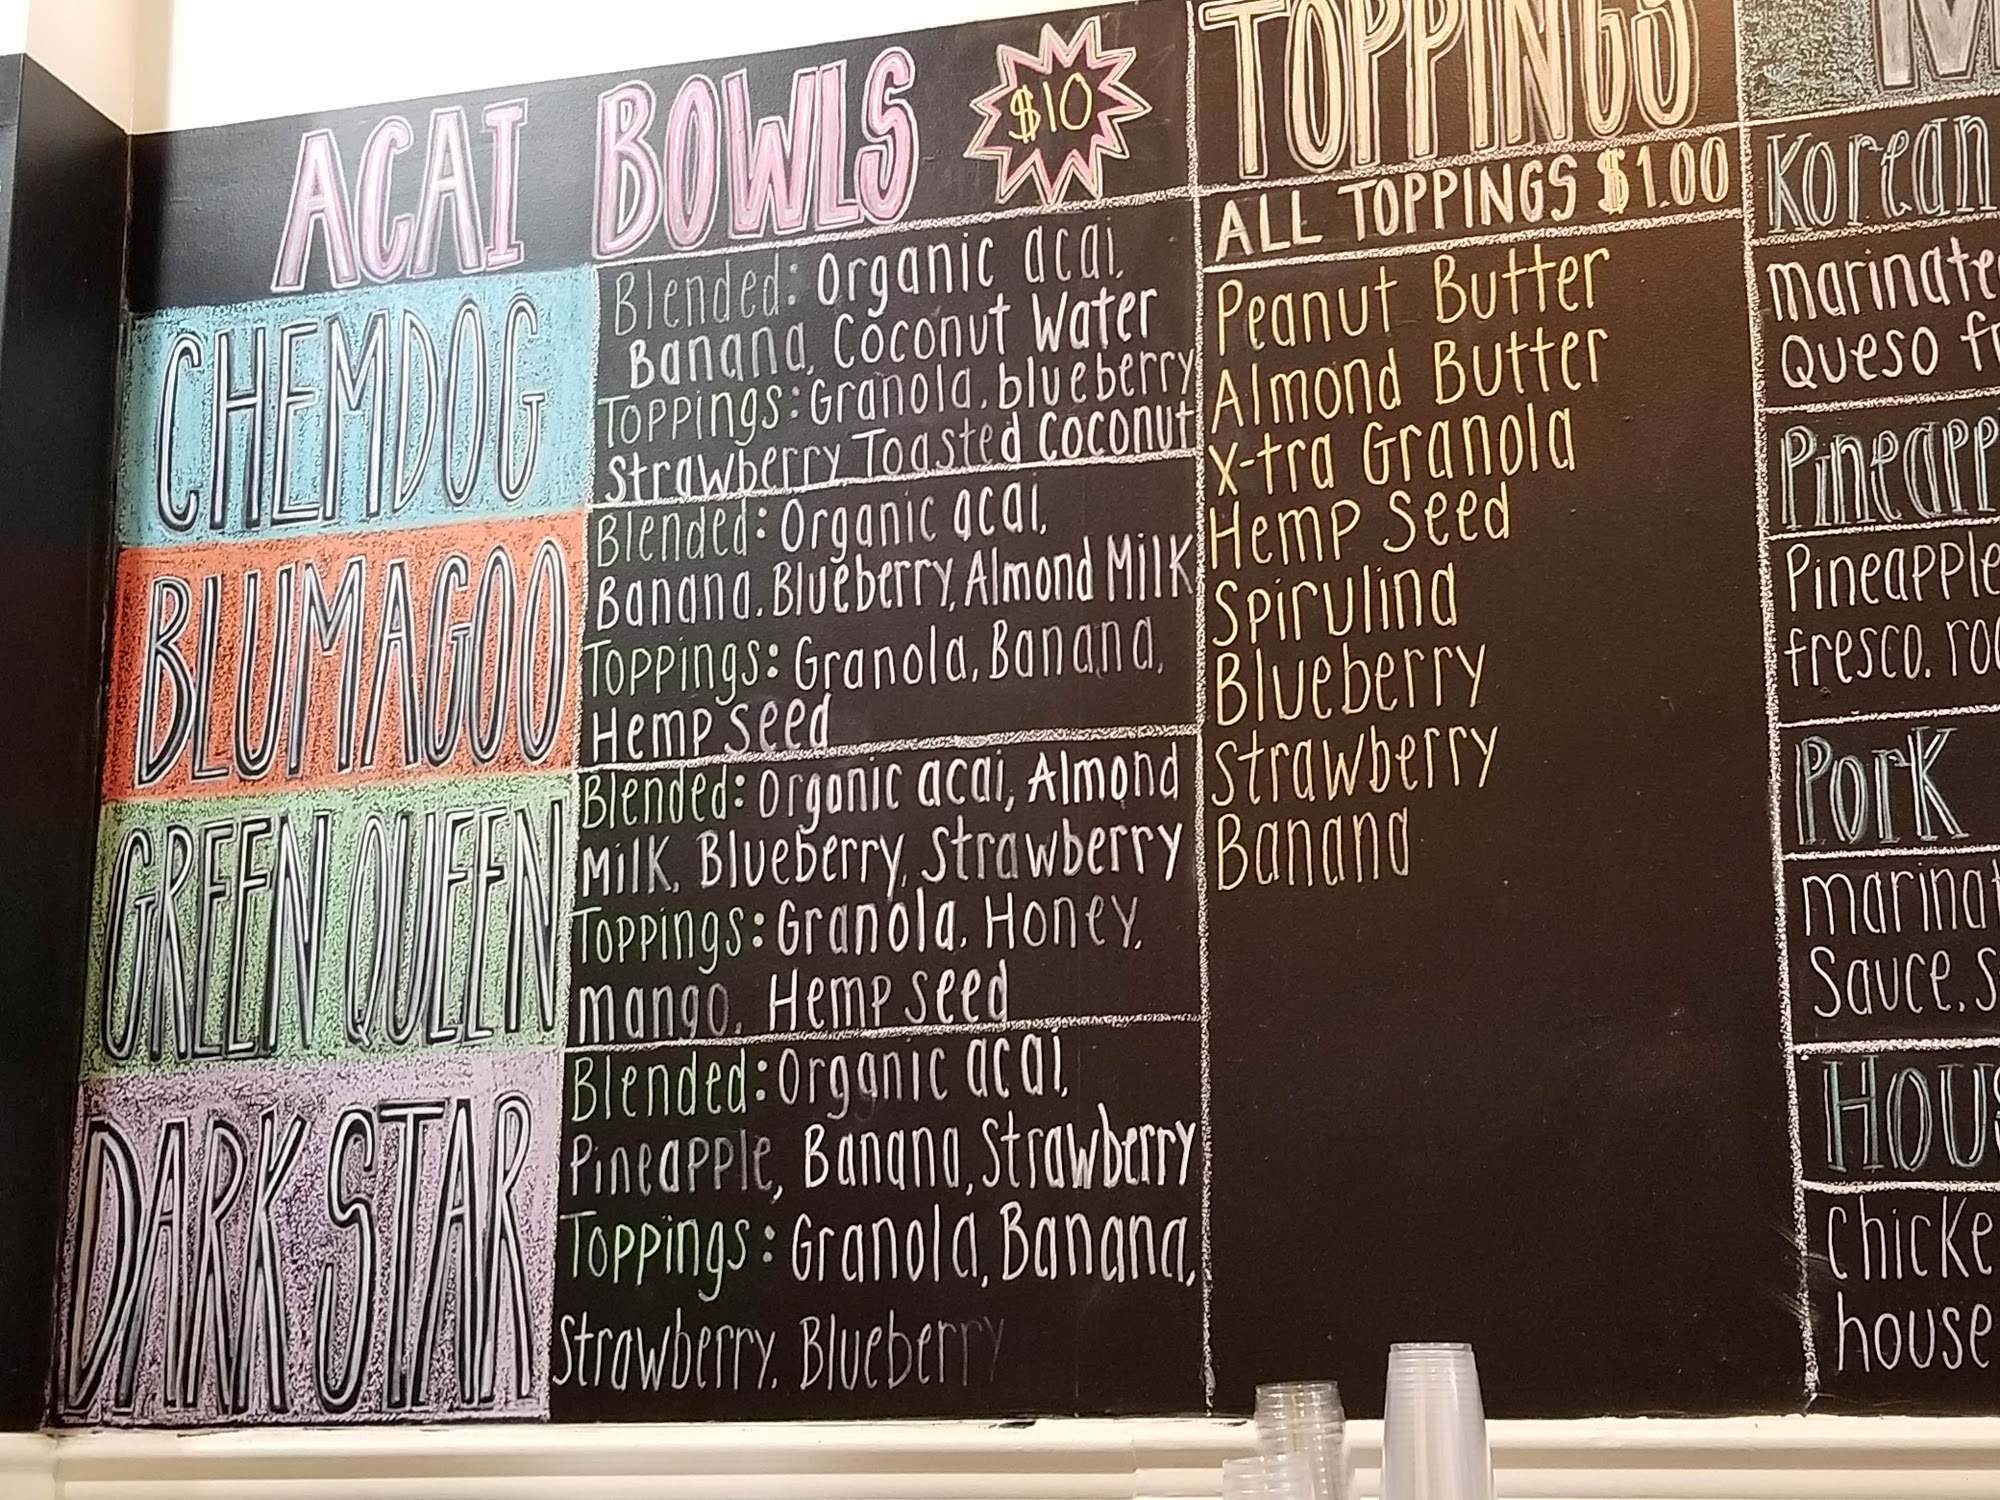 ACAI BOWLS $10
CHEMDOG
Blended: Organic acai,
Banana, Coconut Water
Toppings: Granola, blueberry
Strawberry Toasted Coconut
BLUMAGOO
Blended: Organic acai,
Banana, Blueberry, Almond Milk
Toppings: Granola, Banana,
Hemp Seed
GREEN QUEEN
Blended: Organic acai, Almond
Milk, Blueberry, Strawberry
Toppings: Granola, Honey,
mango, Hemp Seed
DARK STAR
Blended: Organic acai,
Pineapple, Banana, Strawberry
Toppings: Granola, Banana,
Strawberry, Blueberry
TOPPINGS
ALL TOPPINGS $1.00
Peanut Butter
Almond Butter
X-tra Granola
Hemp Seed
Spirulina
Blueberry
Strawberry
Banana
Korean
Queso
Pineapple
fresco.
Pork
Sauce.
house